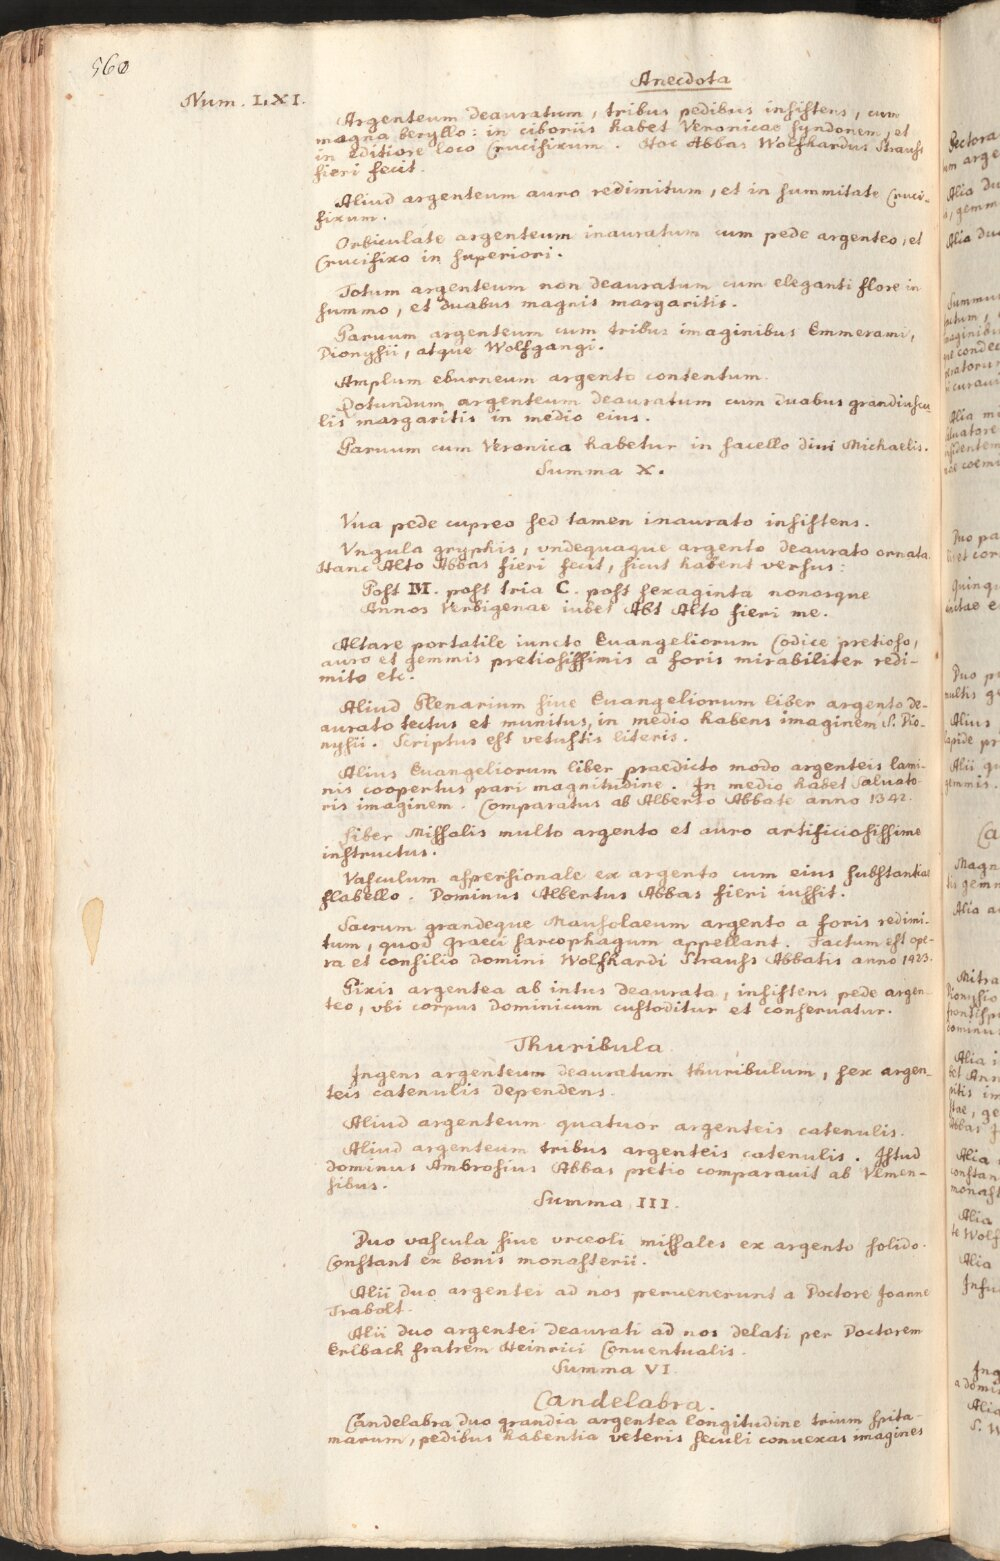 560
Anecdota
Num. LXI.
Argenteum deauratum, tribus pedibus insistens, cum
magna beryllo: in ciboriis habet Veronicae syndonem, et
in editiore loco Crucifixum. Hoc Abbas Wolfhardus Strauss
fieri fecit.
Aliud argenteum auro redimitum, et in summitate Cruci-
fixum.
Orbiculate argenteum inauratum cum pede argenteo, et
Crucifixo in superiori.
Totum argenteum non deauratum cum eleganti flore in
summo, et duabus magnis margaritis.
Paruum argenteum cum tribus imaginibus Emmerami,
Dionysii, atque Wolfgangi.
Amplum eburneum argento contentum.
Rotundum argenteum deauratum cum duabus grandiuscu-
lis margaritis in medio eius.
Paruum cum Veronica habetur in sacello diui Michaelis.
Summa X.
Vua pede cupreo sed tamen inaurato insistens.
Vngula gryphis, vndequaque argento deaurato ornata.
Hanc Alto Abbas fieri fecit, sicut habent versus:
Post M. post tria C. post sexaginta nonosque
Annos Verbigenae iubet Abt Alto fieri me.
Altare portatile iuncto Euangeliorum Codice pretioso,
auro et gemmis pretiosissimis a foris mirabiliter redi-
mito etc.
Aliud Plenarium siue Euangeliorum liber argento de-
aurato tectus et munitus, in medio habens imaginem S. Dio-
nysii. Scriptus est vetustis literis.
Alius Euangeliorum liber praedicto modo argenteis lami-
nis coopertus pari magnitudine. In medio habet Saluato-
ris imaginem. Comparatus ab Alberto Abbate anno 1342.
Liber Missalis multo argento et auro artificiosissime
instructus.
Vasculum aspersionale ex argento cum eius substantiae
flabello. Dominus Albertus Abbas fieri iussit.
Sacrum grandeque Mausolaeum argento a foris redimi-
tum, quod graeci sarcophagum appellant. Factum est ope-
ra et consilio domini Wolfhardi Strauss Abbatis anno 1423.
Pixis argentea ab intus deaurata, insistens pede argen-
teo, vbi corpus dominicum custoditur et conseruatur.
Thuribula.
Ingens argenteum deauratum thuribulum, sex argen-
teis catenulis dependens.
Aliud argenteum quatuor argenteis catenulis.
Aliud argenteum tribus argenteis catenulis. Istud
dominus Ambrosius Abbas pretio comparauit ab Vlmen-
sibus.
Summa III.
Duo vascula siue vrceoli missales ex argento solido.
Constant ex bonis monasterii.
Alii duo argentei ad nos peruenerunt a Doctore Joanne
Trabolt.
Alii duo argentei deaurati ad nos delati per Doctorem
Erlbach fratrem Heinrici Conuentualis.
Summa VI.
Candelabra.
Candelabra duo grandia argentea longitudine trium spita-
marum, pedibus habentia veteris seculi conuexas imagines